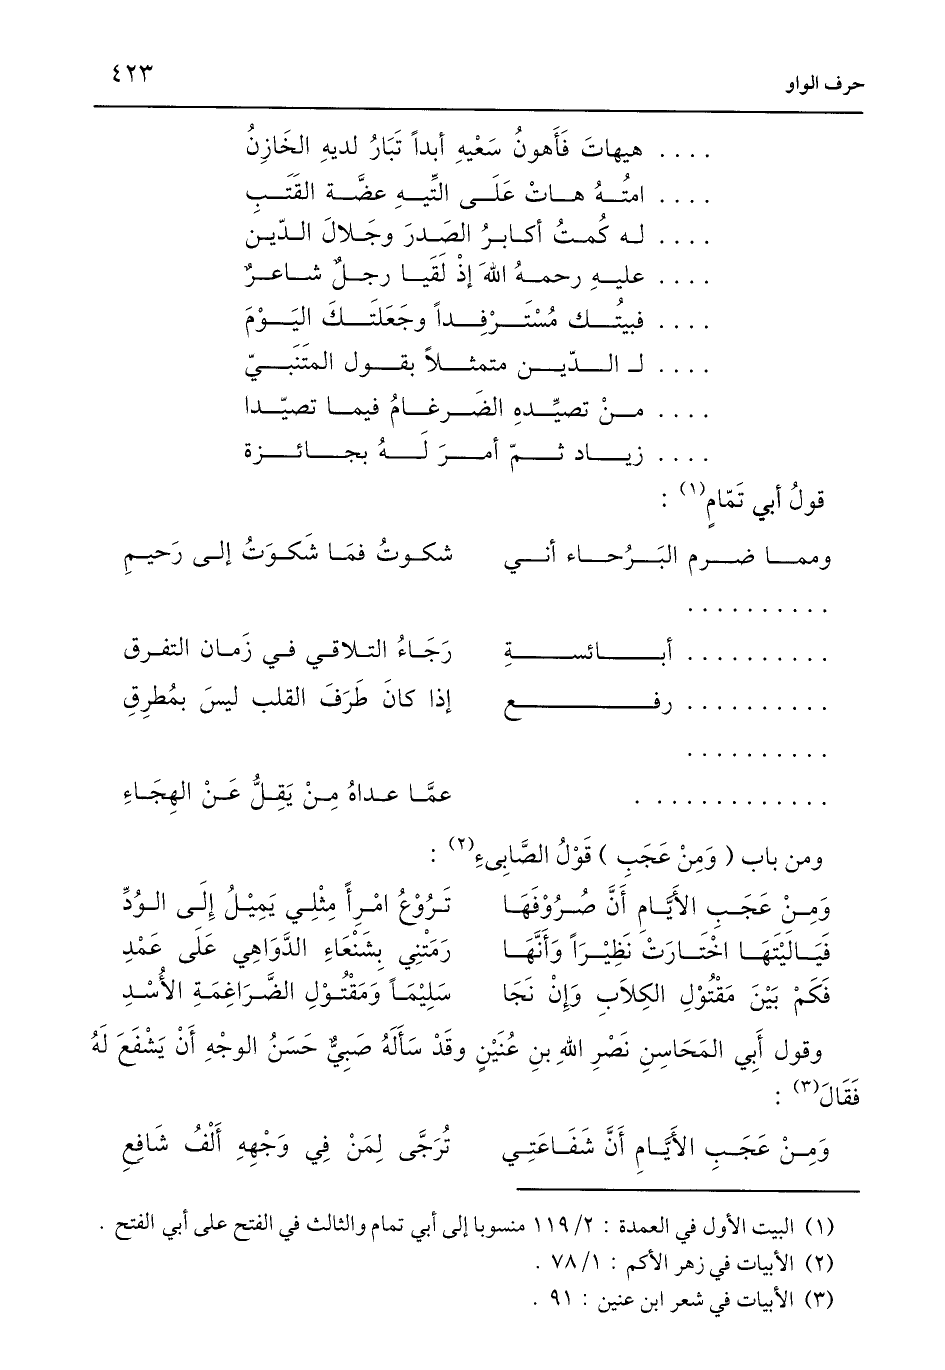 حرف الواو ٤٢٣
. . . . هيهاتَ فَأَهونُ سَعْيِهِ أبداً تَبَارُ لديهِ الخَازِنُ
. . . . امتُهُ هاتْ عَلَى التِّيهِ عضَّة القَتبِ
. . . . له كُمتُ أكابرُ الصَدرَ وجَلالَ الدّينِ
. . . . عليهِ رحمهُ اللهَ إذْ لَقَيا رجلٌ شاعرٌ
. . . . فبيتُك مُسْتَرْفِداً وجَعَلتَكَ اليَوْمَ
. . . . لـ الدّينِ متمثلاً بقول المتَنَبيّ
. . . . منْ تصيِّدهِ الضَرغامُ فيما تصيّدا
. . . . زياد ثمّ أمرَ لَهُ بجائزة
قولُ أبي تَمّامٍ(١) :
ومما ضرم البَرُحاء أني شكوتُ فمَا شَكوَتُ إلى رَحيمِ
. . . . . . . . . .
. . . . . . . . . . أبائسةِ رَجَاءُ التلاقي في زَمان التفرق
. . . . . . . . . . رفع إذا كانَ طَرَفَ القلب ليسَ بمُطرِقِ
. . . . . . . . . .
. . . . . . . . . . . . . عمَّا عداهُ مِنْ يَقِلُّ عَنْ الهِجَاءِ
ومن باب ( وَمِنْ عَجَبِ ) قَوْلُ الصَّابِىءِ(٢) :
وَمِنْ عَجَبِ الأَيَّامِ أَنَّ صُرُوْفَهَا تَرُوْعُ امْرأً مِثْلِي يَمِيْلُ إِلَى الوُدِّ
فَيَالَيْتَهَا اخْتَارَتْ نَظِيْرَاً وَأَنَّهَا رَمَتْنِي بِشَنْعَاءِ الدَّوَاهِي عَلَى عَمْدِ
فَكَمْ بَيْنَ مَقْتُوْلِ الكِلَابِ وَإِنْ نَجَا سَلِيْمَاً وَمَقْتُوْلِ الضَّرَاغِمَةِ الأُسْدِ
وقول أَبِي المَحَاسِنِ نَصْرِ اللهِ بنِ عُنَيْنٍ وقَدْ سَأَلَهُ صَبِيٌّ حَسَنُ الوجْهِ أَنْ يَشْفَعَ لَهُ
فَقَالَ(٣) :
وَمِنْ عَجَبِ الأَيَّامِ أَنَّ شَفَاعَتِي تُرَجَّى لِمَنْ فِي وَجْهِهِ أَلْفُ شَافِعِ
(١) البيت الأول في العمدة : ١١٩/٢ منسوبا إلى أبي تمام والثالث في الفتح على أبي الفتح .
(٢) الأبيات في زهر الأكم : ٧٨/١ .
(٣) الأبيات في شعر ابن عنين : ٩١ .